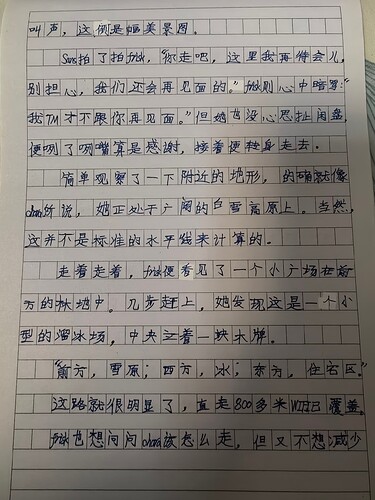 叫声，这倒是幅美景图。
Sans拍了拍frisk，"你走吧，这里我再待会儿，
别担心，我们还会再见面的。"frisk则心中暗骂："
我TM才不跟你再见面。"但她也没心思扯闲盘，
便咧了咧嘴算是感谢，接着便独身走去。
简单观察了一下附近的地形，的确就像
chara所说，她正处于广阔的白雪高原上。当然，
这并不是标准的水平线来计算的。
走着走着，frisk便看见了一个小广场在前
方的林地中。几步赶上，她发现这是一个小
型的溜冰场，中央立着一块木牌。
"南方，雪原；西方，冰；东方，住宅区。"
这路就很明显了，直走800多米 覆盖。
frisk也想问问chara该怎么走，但又不想减少